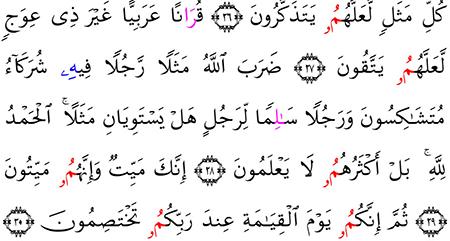 كُلِّ مَثَلٍ لَّعَلَّهُمُۥ يَتَذَكَّرُونَ ٢٦ قُرَانًا عَرَبِيًّا غَيْرَ ذِى عِوَجٍ
لَّعَلَّهُمُۥ يَتَّقُونَ ٢٧ ضَرَبَ ٱللَّهُ مَثَلًا رَّجُلًا فِيهِۦ شُرَكَآءُ
مُتَشَٰكِسُونَ وَرَجُلًا سَٰلِمًا لِّرَجُلٍ هَلْ يَسْتَوِيَانِ مَثَلًا ۚ ٱلْحَمْدُ
لِلَّهِ ۚ بَلْ أَكْثَرُهُمُۥ لَا يَعْلَمُونَ ٢٨ إِنَّكَ مَيِّتٌ وَإِنَّهُمُۥ مَيِّتُونَ
٢٩ ثُمَّ إِنَّكُمُۥ يَوْمَ ٱلْقِيَٰمَةِ عِندَ رَبِّكُمُۥ تَخْتَصِمُونَ ٣٠